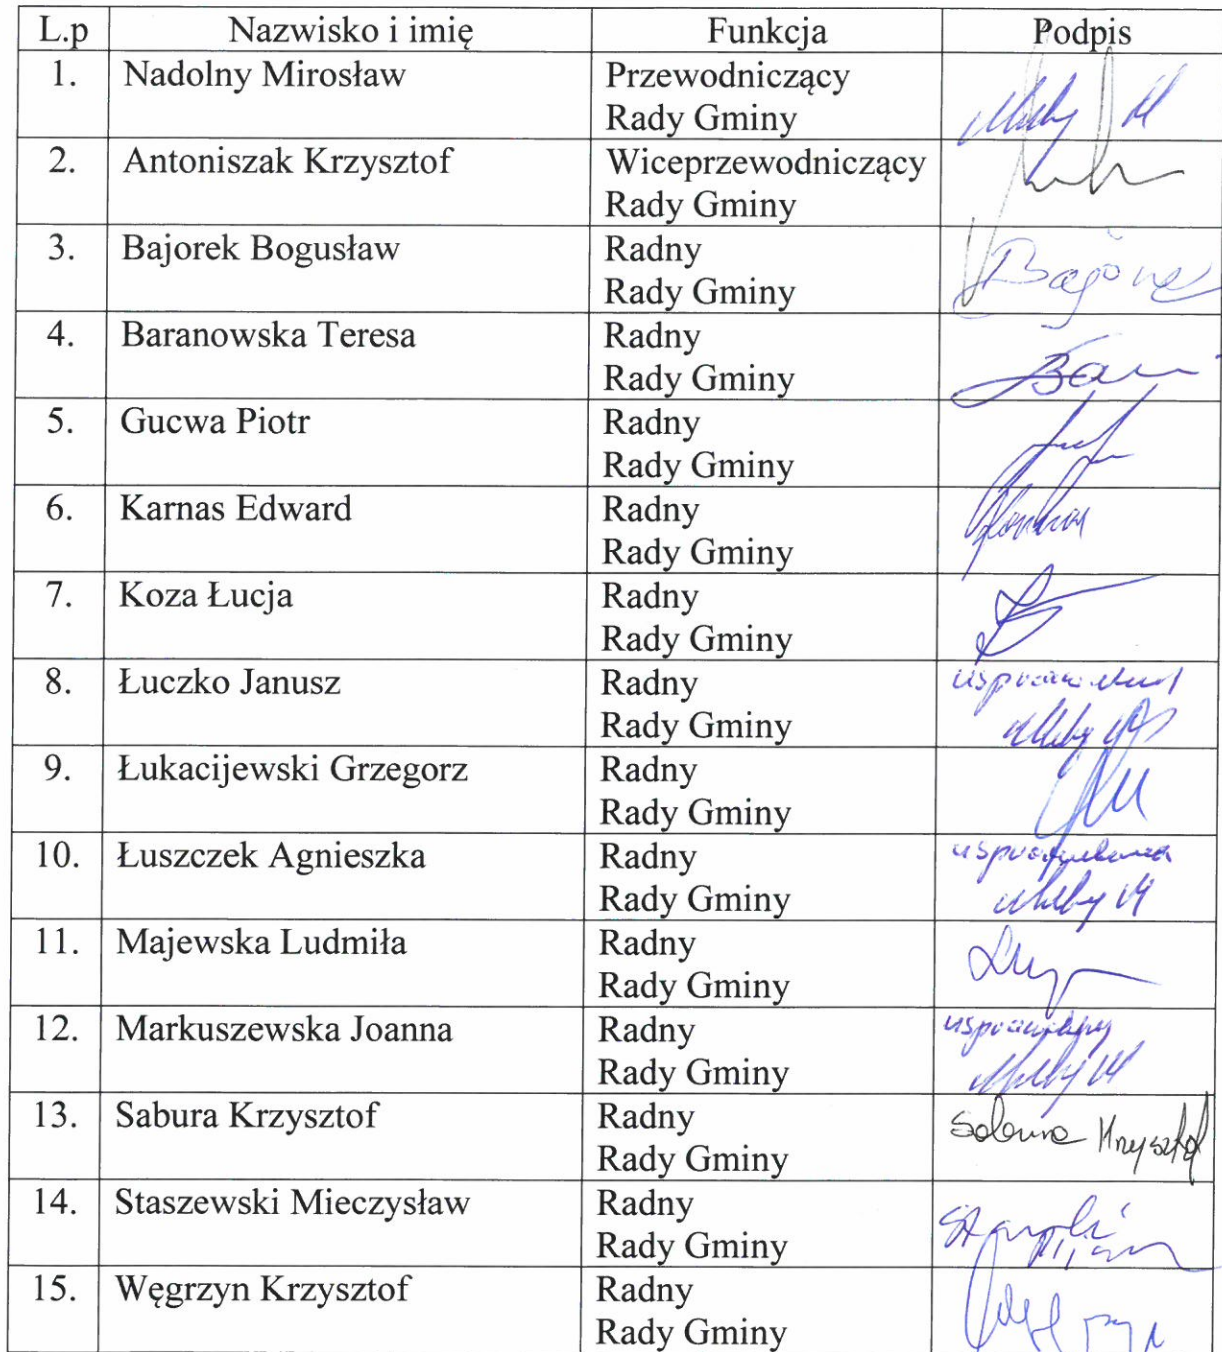 L.p Nazwisko i imię Funkcja Podpis
1. Nadolny Mirosław Przewodniczący
Rady Gminy
2. Antoniszak Krzysztof Wiceprzewodniczący
Rady Gminy
3. Bajorek Bogusław Radny
Rady Gminy
4. Baranowska Teresa Radny
Rady Gminy
5. Gucwa Piotr Radny
Rady Gminy
6. Karnas Edward Radny
Rady Gminy
7. Koza Łucja Radny
Rady Gminy
8. Łuczko Janusz Radny
Rady Gminy
9. Łukacijewski Grzegorz Radny
Rady Gminy
10. Łuszczek Agnieszka Radny
Rady Gminy
11. Majewska Ludmiła Radny
Rady Gminy
12. Markuszewska Joanna Radny
Rady Gminy
13. Sabura Krzysztof Radny Sabura Krzysztof
Rady Gminy
14. Staszewski Mieczysław Radny
Rady Gminy
15. Węgrzyn Krzysztof Radny
Rady Gminy